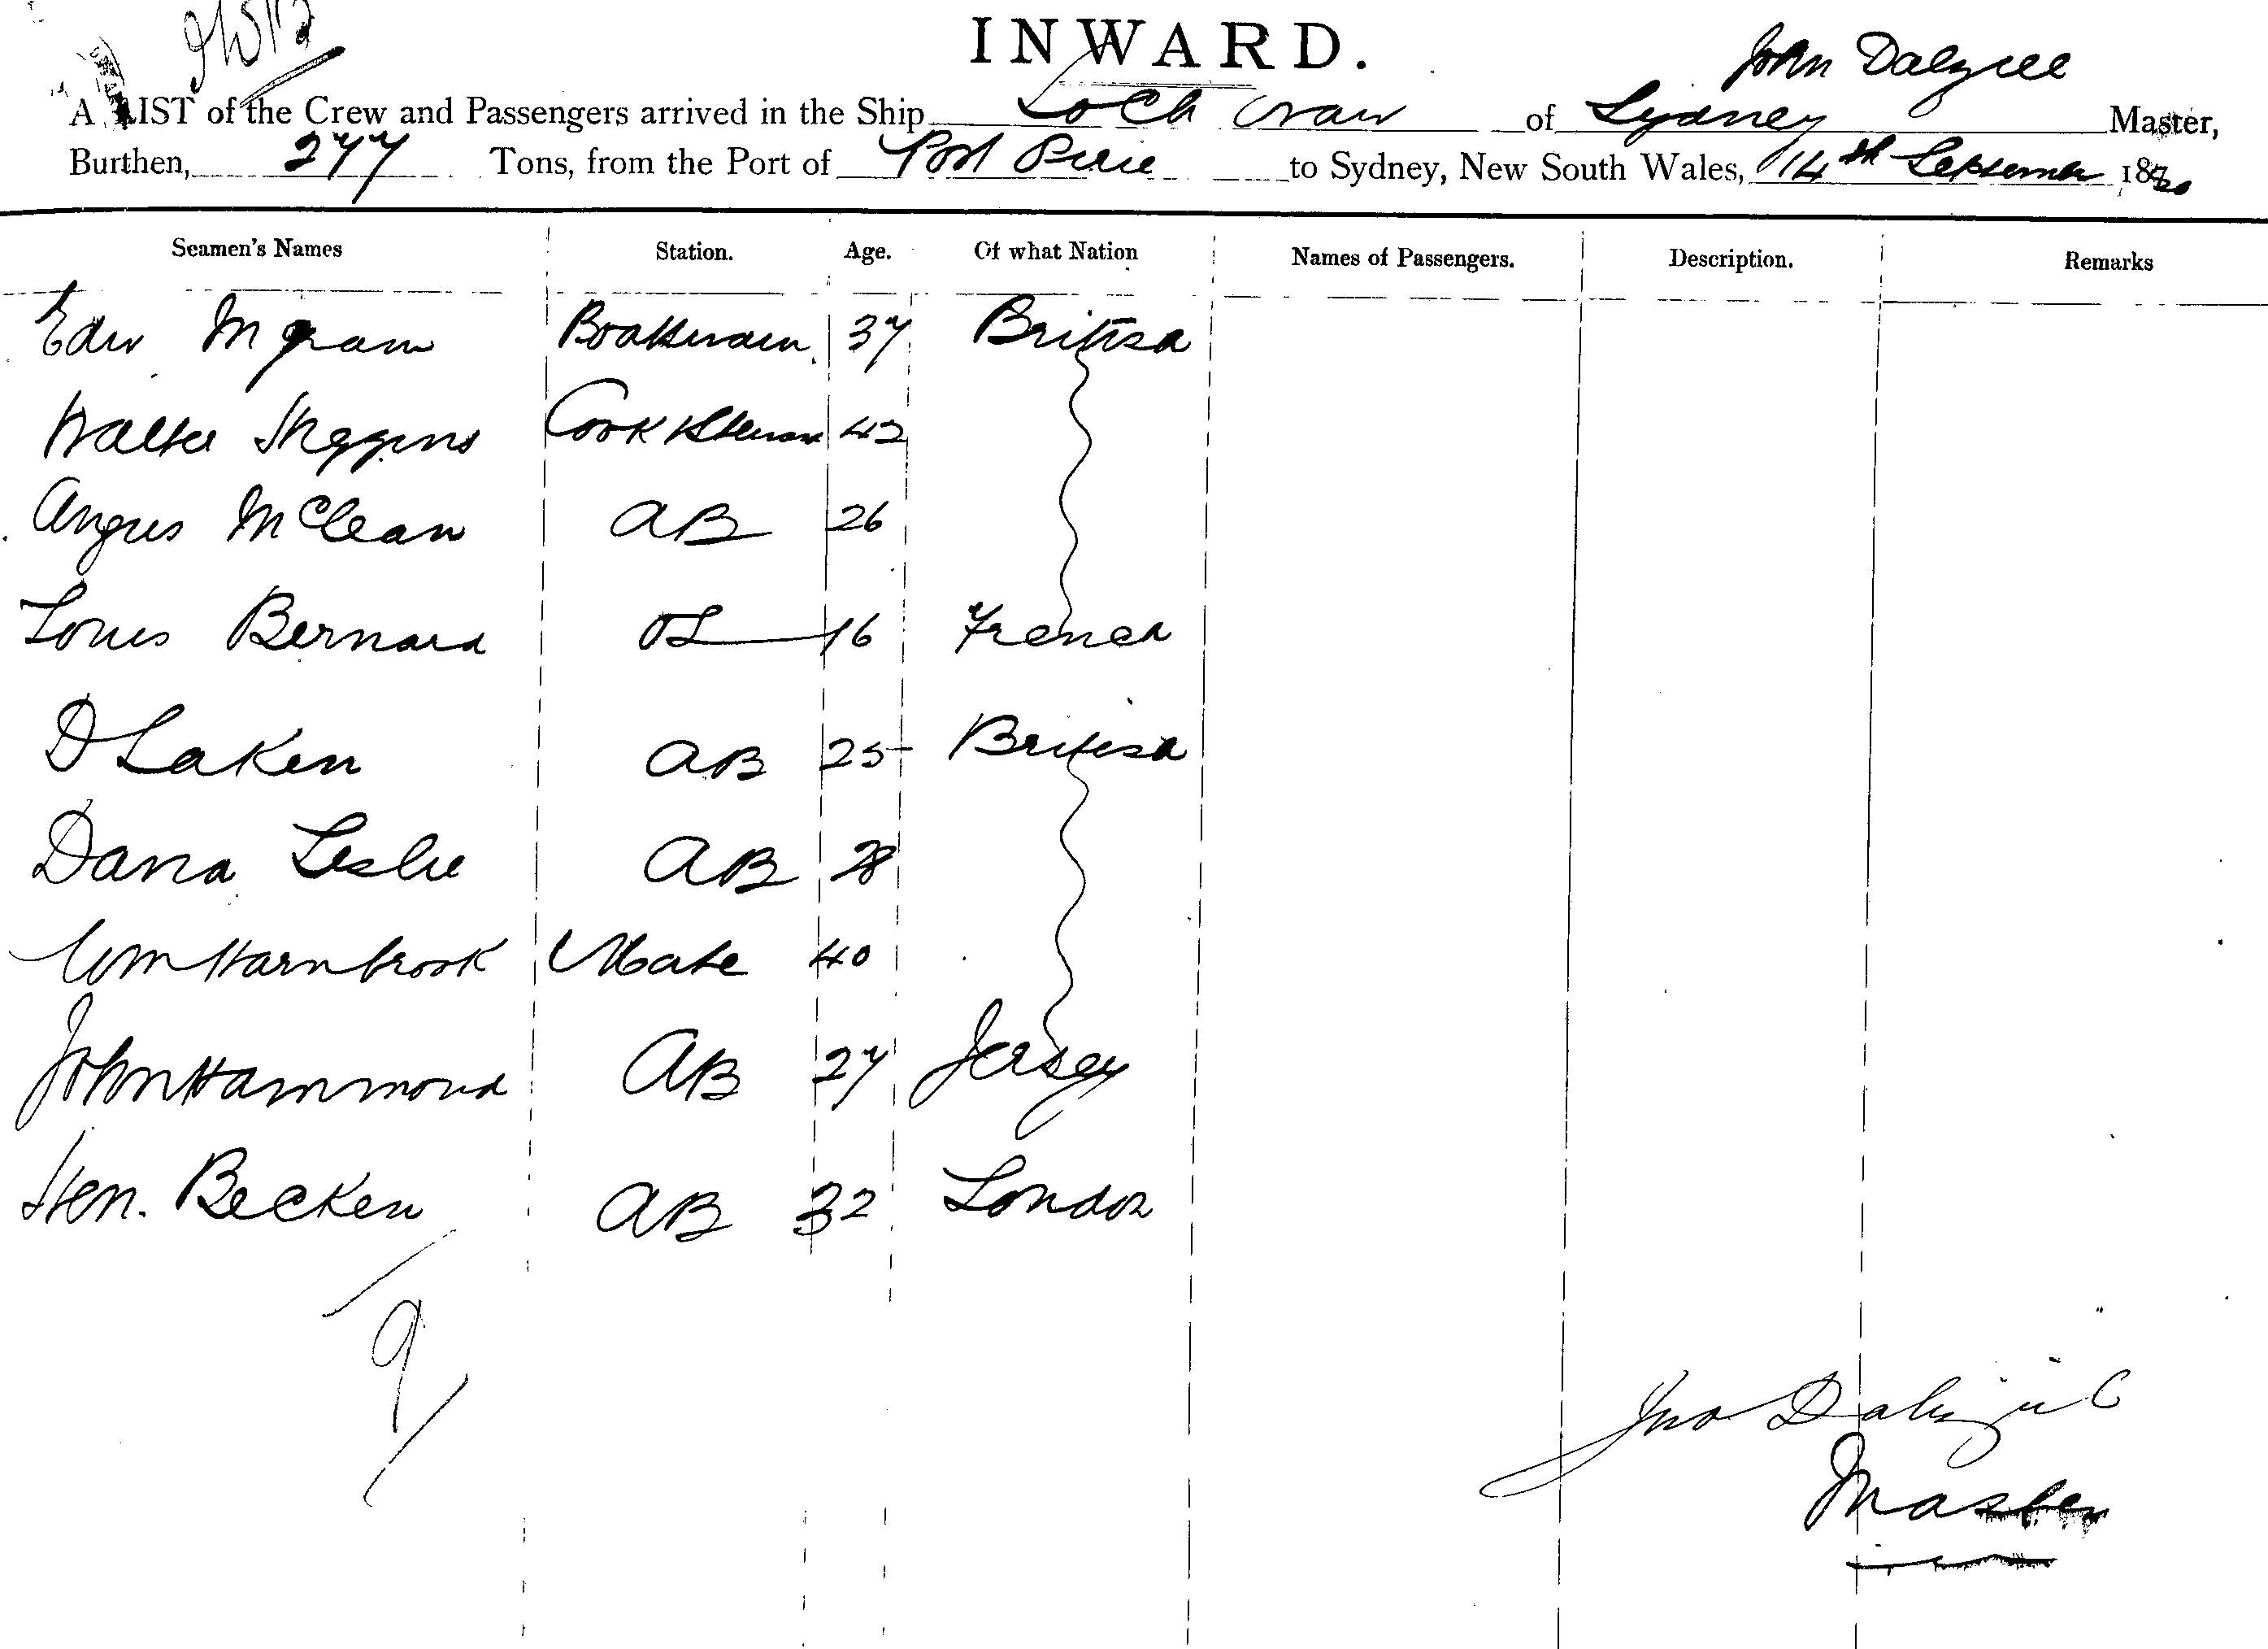 INWARD.
John Dalziell
A LIST of the Crew and Passengers arrived in the Ship Loch of Sydney Master,
Burthen, 277 Tons, from the Port of Port Pirie to Sydney, New South Wales, 14th September 18
Seamen's Names Station. Age. Of what Nation Names of Passengers. Description. Remarks
Edw Ingram Boatswain 37 British
Walter Higgins Cook & Steward 42
Angus McLean AB 26
Louis Bernard OS 16 French
D Laken AB 25 British
David Leslie AB 28
Wm Harnbrook Mate 40
John Hammond AB 27 Jersey
Hen. Becken AB 32 London
9
Jno Dalziel
Master